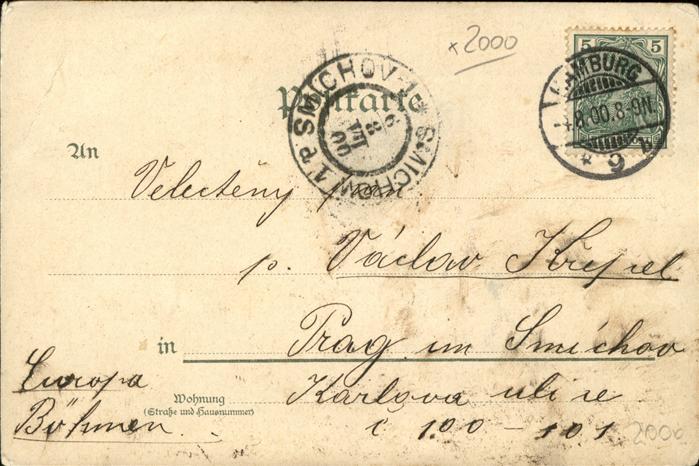 x 2000
5 5
Postkarte
SMICHOV 1 SMICHOW 1
HAMBURG
4.8.00.8-9N.
* 9
An
Velectěný pan
p. Václav Křepel
in Prag im Smíchov
Europa
Wohnung
(Straße und Hausnummer)
Karlova ulice
Böhmen.
č 100 - 101
2000